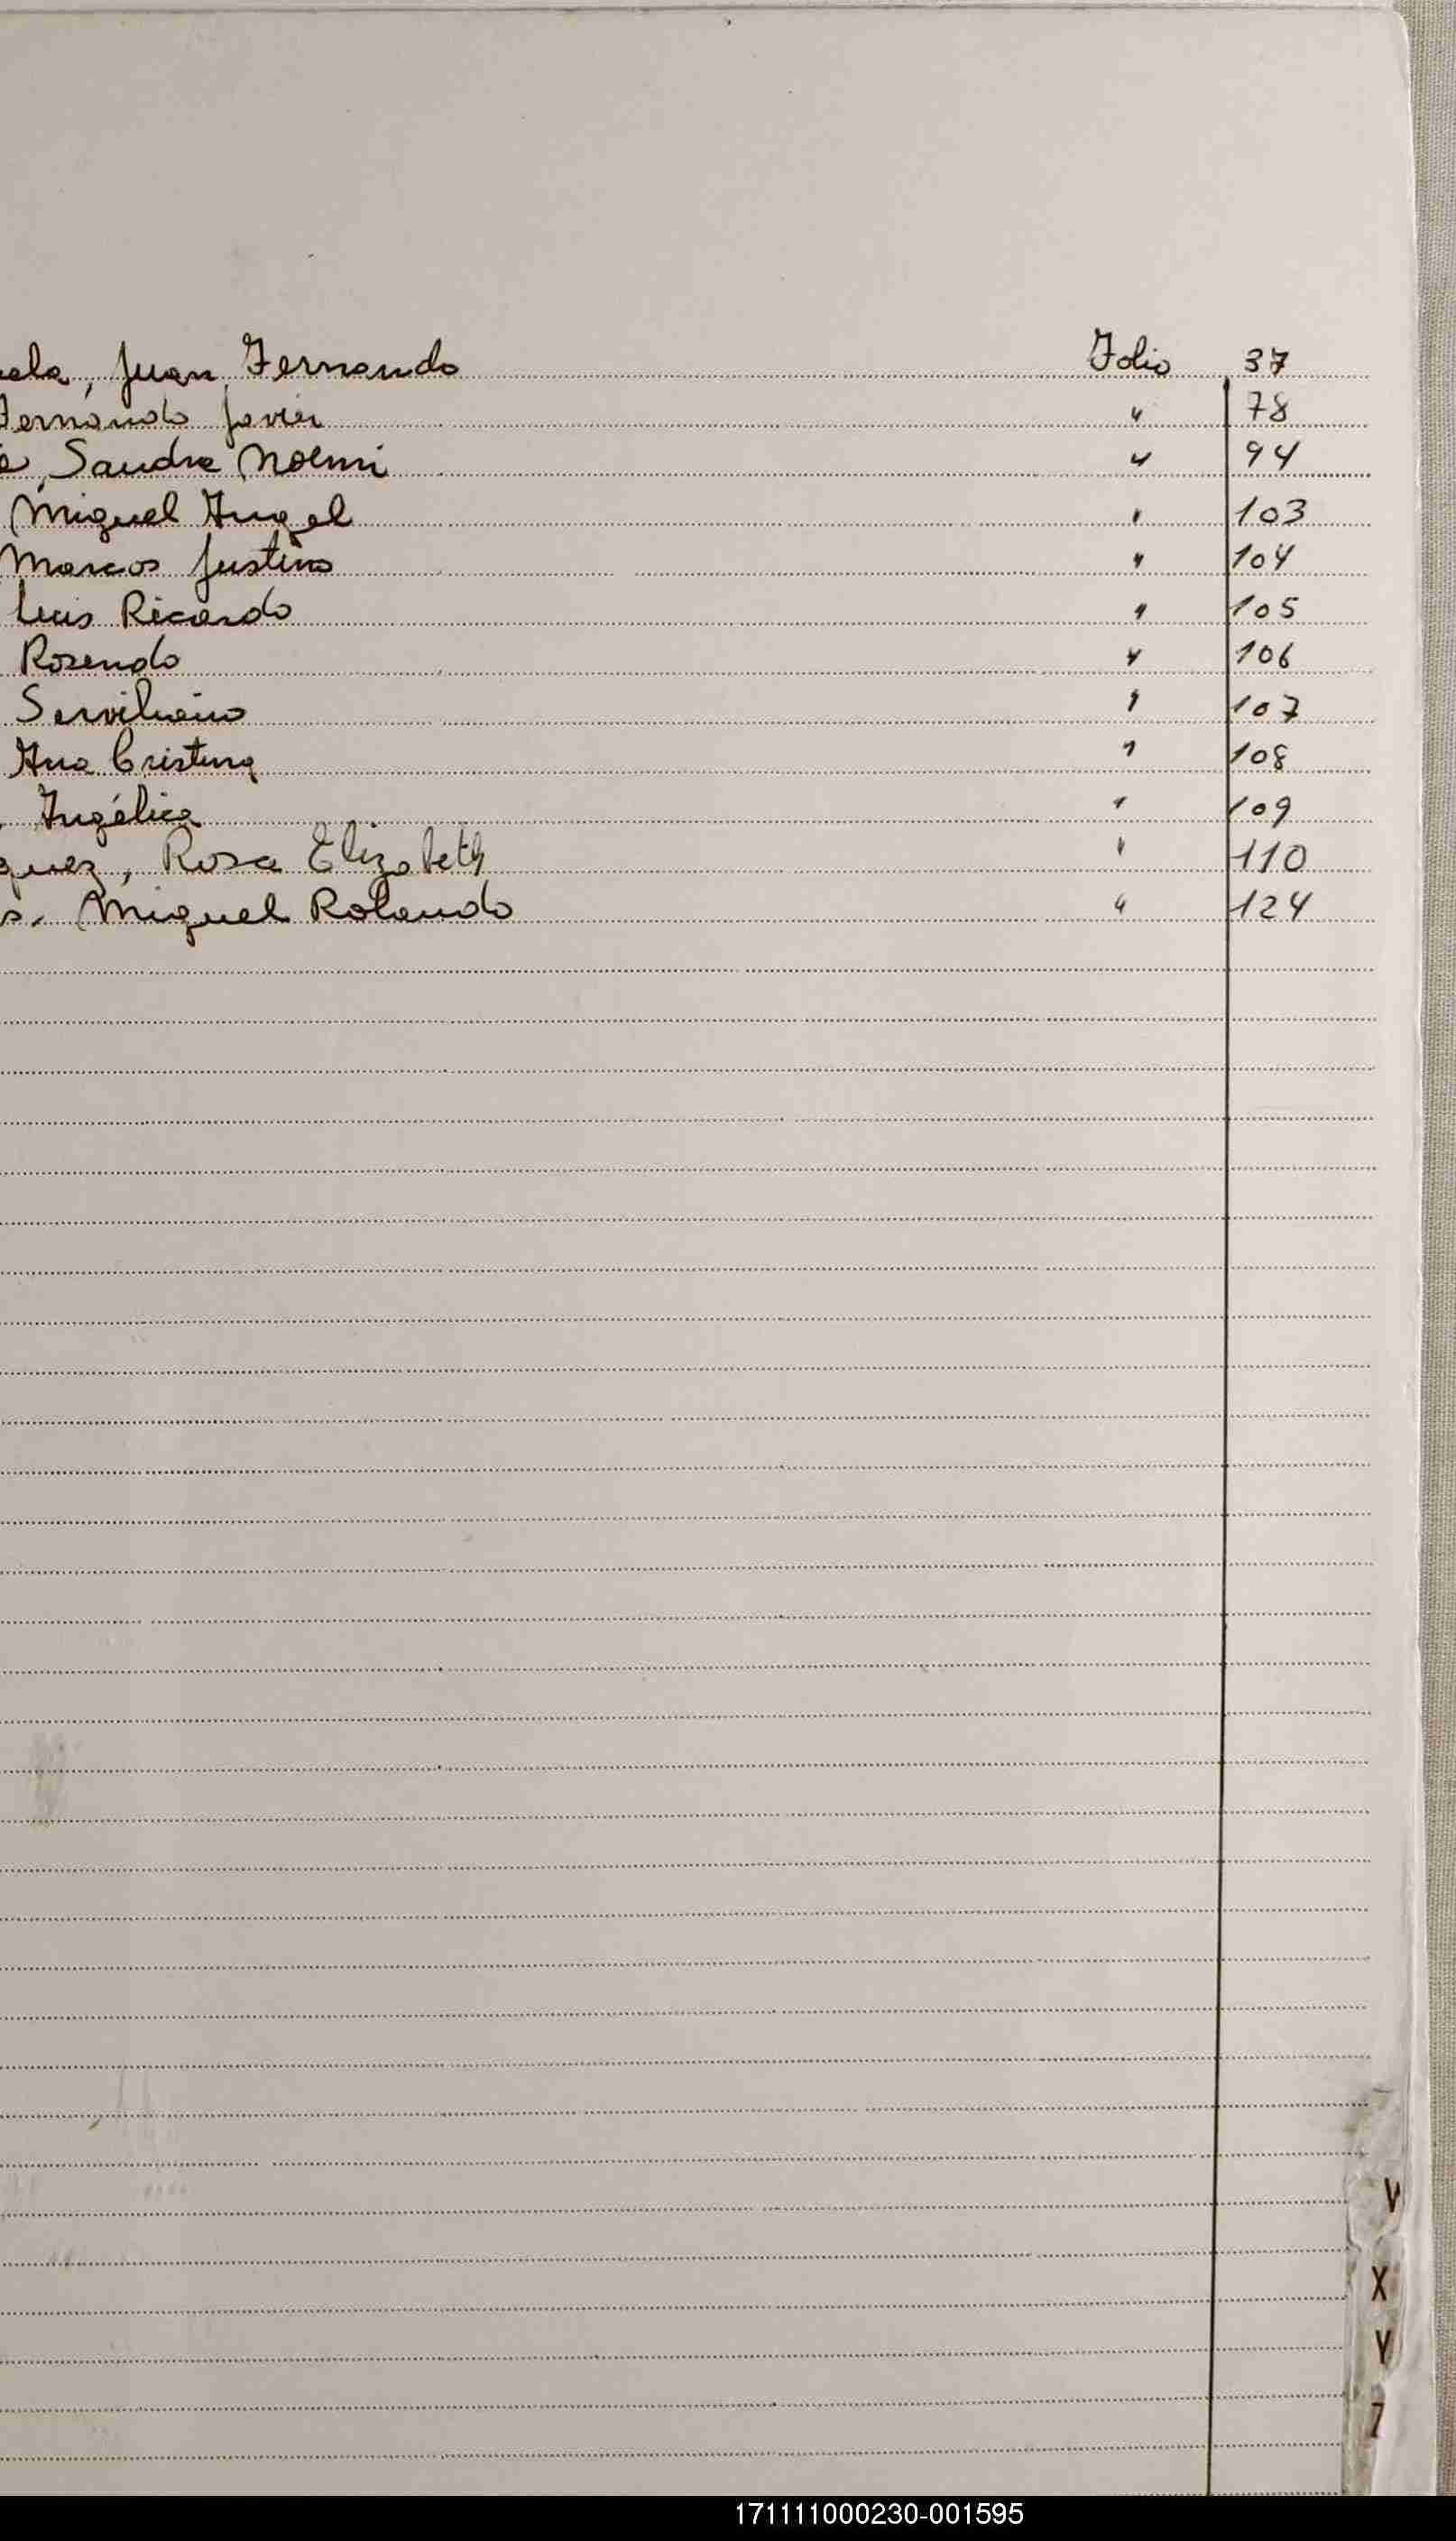 ela, Juan Fernando Folio 37
Fernando Javier " 78
Sandra Noemi " 94
Miguel Angel " 103
Marcos Justino " 104
Luis Ricardo " 105
Rosendo " 106
Serviliano " 107
Ana Cristina " 108
Angélica " 109
guez, Rosa Elizabeth " 110
s. Miguel Rolando " 124
V
X
Y
Z
171111000230-001595